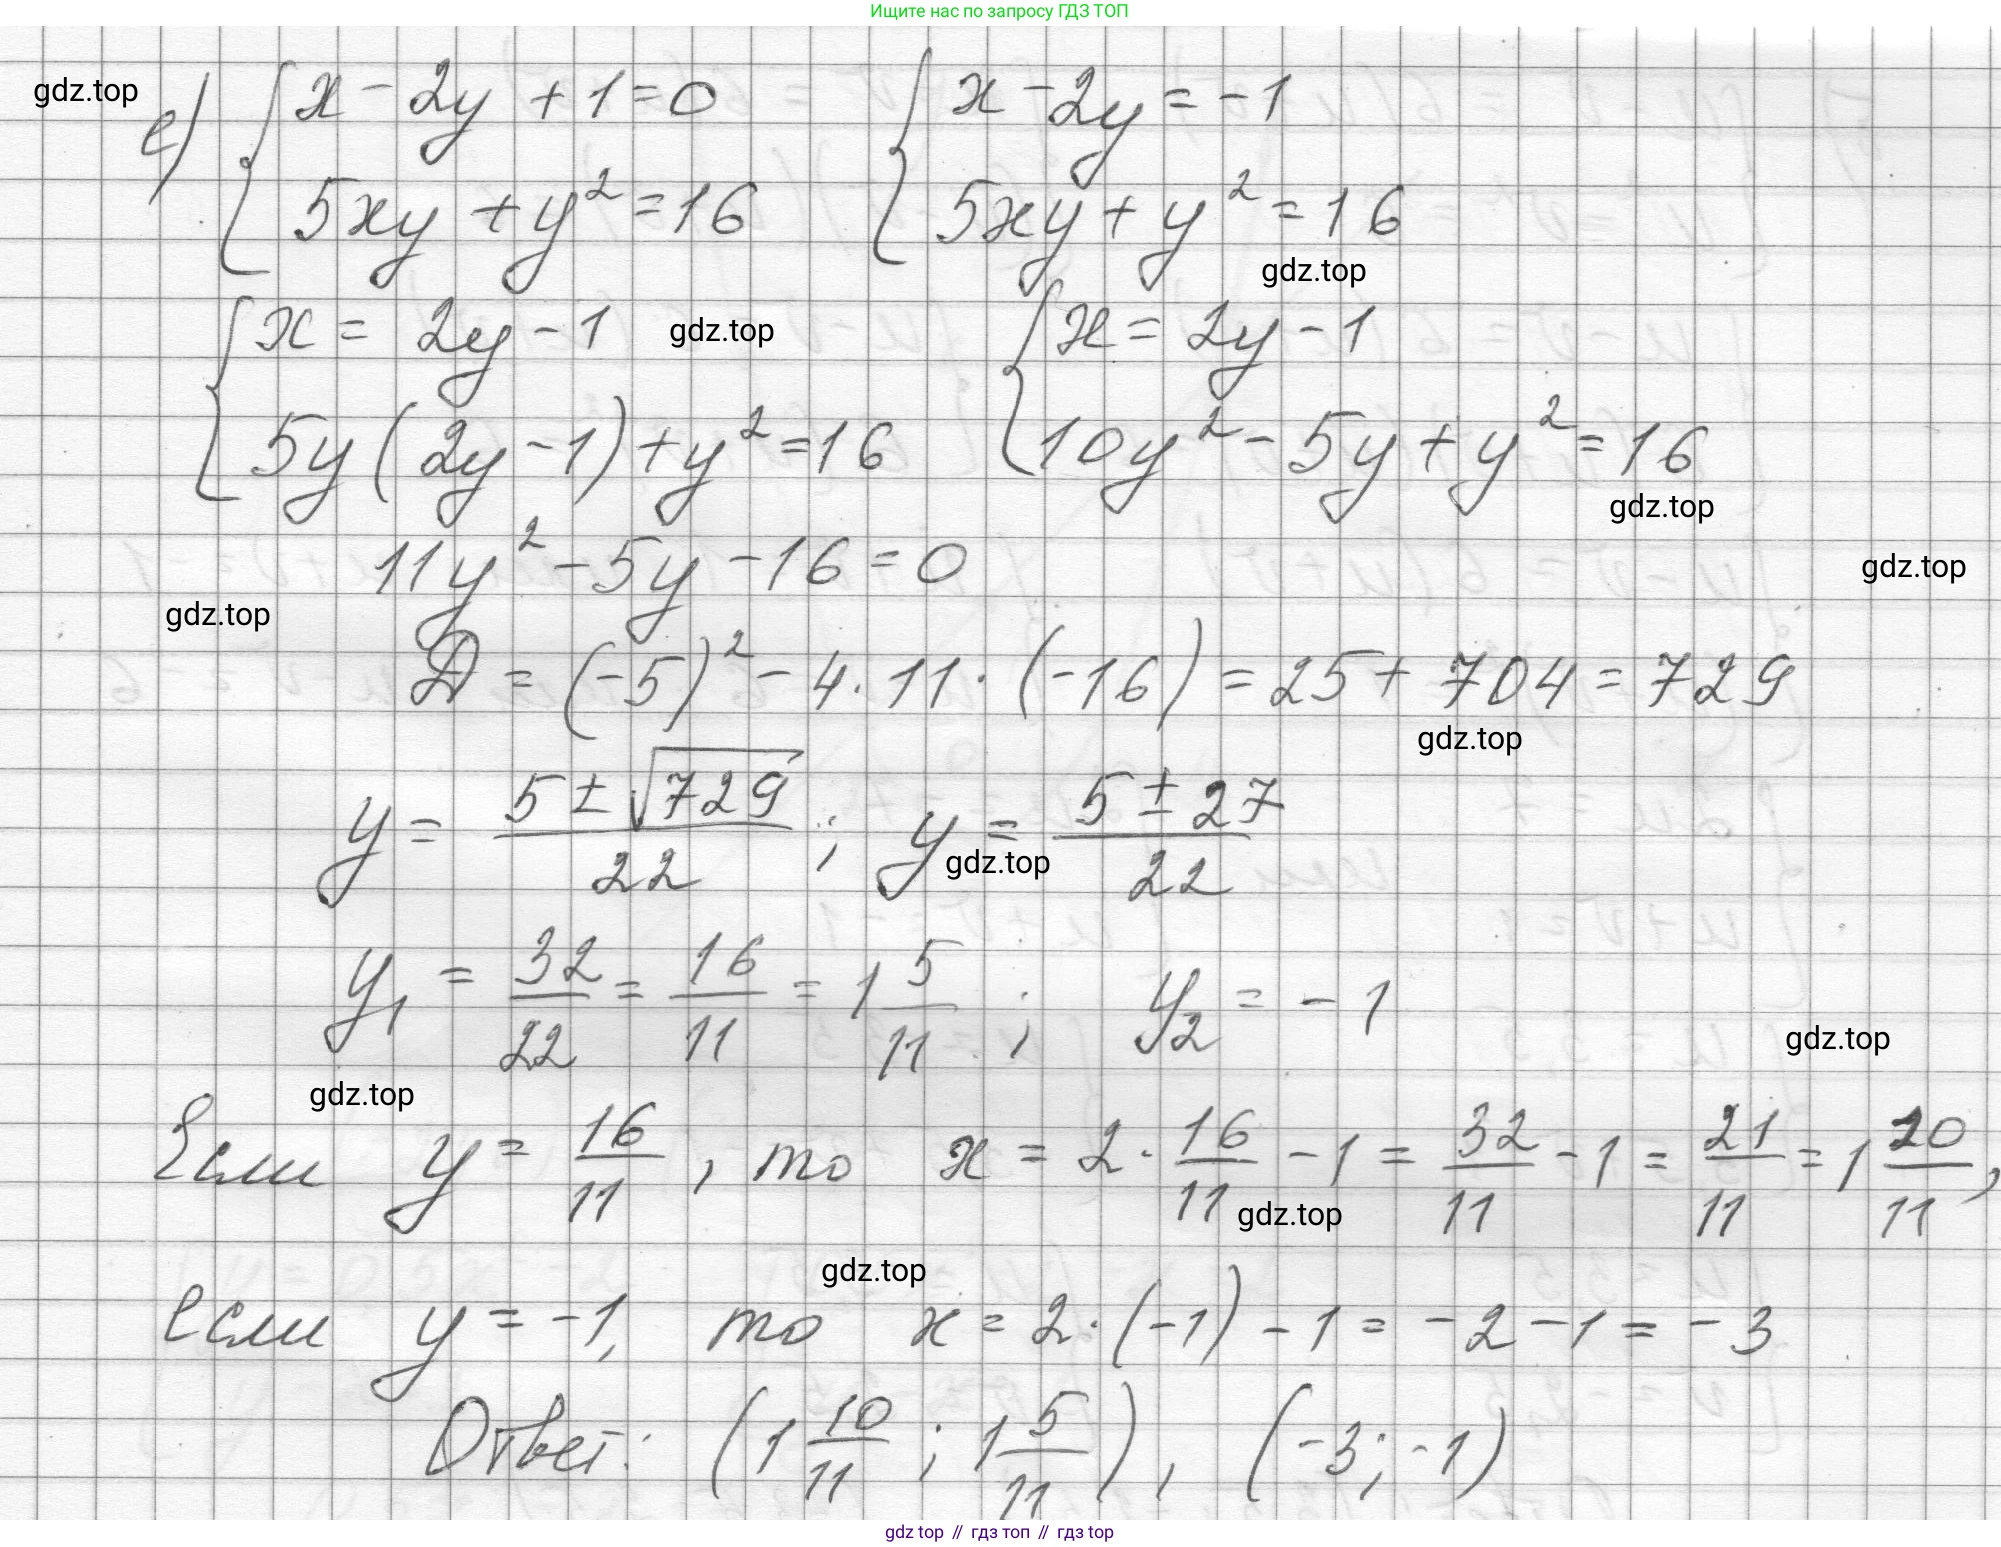 Ищите нас по запросу ГДЗ ТОП
gdz.top
е) { x - 2y + 1 = 0 { x - 2y = -1
5xy + y² = 16 5xy + y² = 16
gdz.top
{ x = 2y - 1 gdz.top { x = 2y - 1
5y(2y - 1) + y² = 16 10y² - 5y + y² = 16
gdz.top
11y² - 5y - 16 = 0
gdz.top
gdz.top
D = (-5)² - 4 · 11 · (-16) = 25 + 704 = 729
gdz.top
y = (5 ± √729)/22 ; y = (5 ± 27)/22
gdz.top
y₁ = 32/22 = 16/11 = 1 5/11 ; y₂ = -1
gdz.top
gdz.top
Если y = 16/11 , то x = 2 · 16/11 - 1 = 32/11 - 1 = 21/11 = 1 10/11 ,
gdz.top
gdz.top
если y = -1, то x = 2 · (-1) - 1 = -2 - 1 = -3
Ответ: (1 10/11 ; 1 5/11) , (-3; -1)
gdz top // гдз топ // гдз top